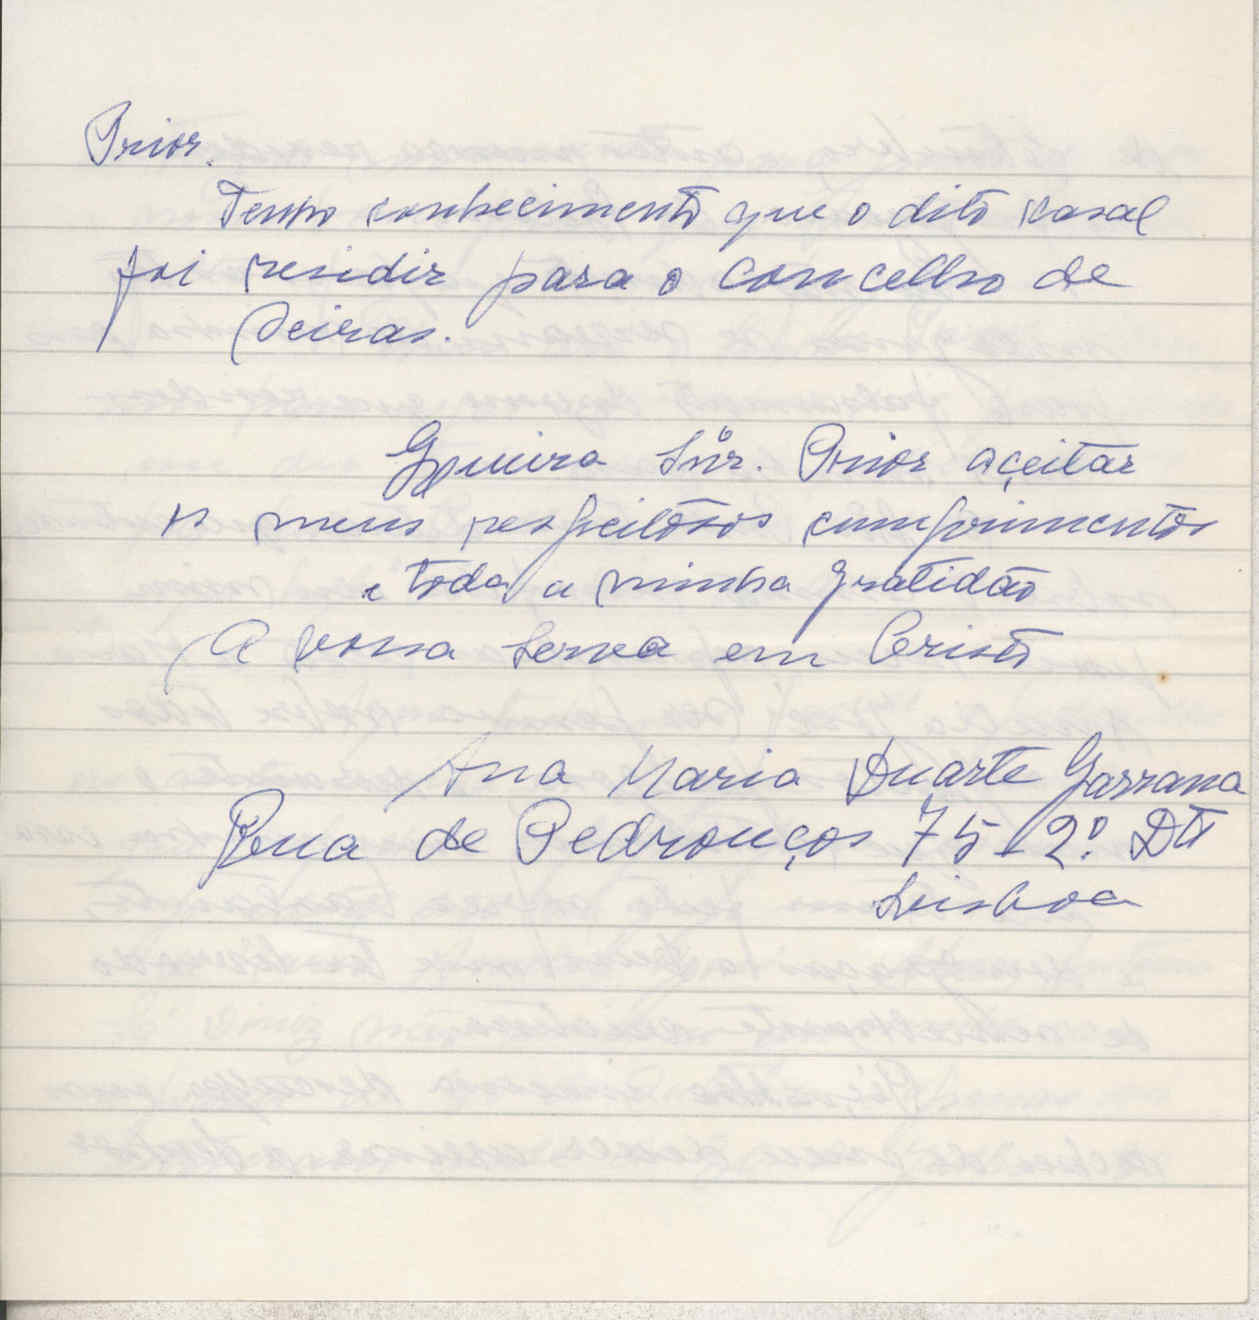 Prior.
Tenho conhecimento que o dito casal
foi residir para o concelho de
Oeiras.
Queira Snr. Prior açeitar
os meus respeitosos cumprimentos
e toda a minha gratidão
A vossa serva em Cristo
Ana Maria Duarte Garrana
Rua de Pedrouços 75-2º. Dtº
Lisboa